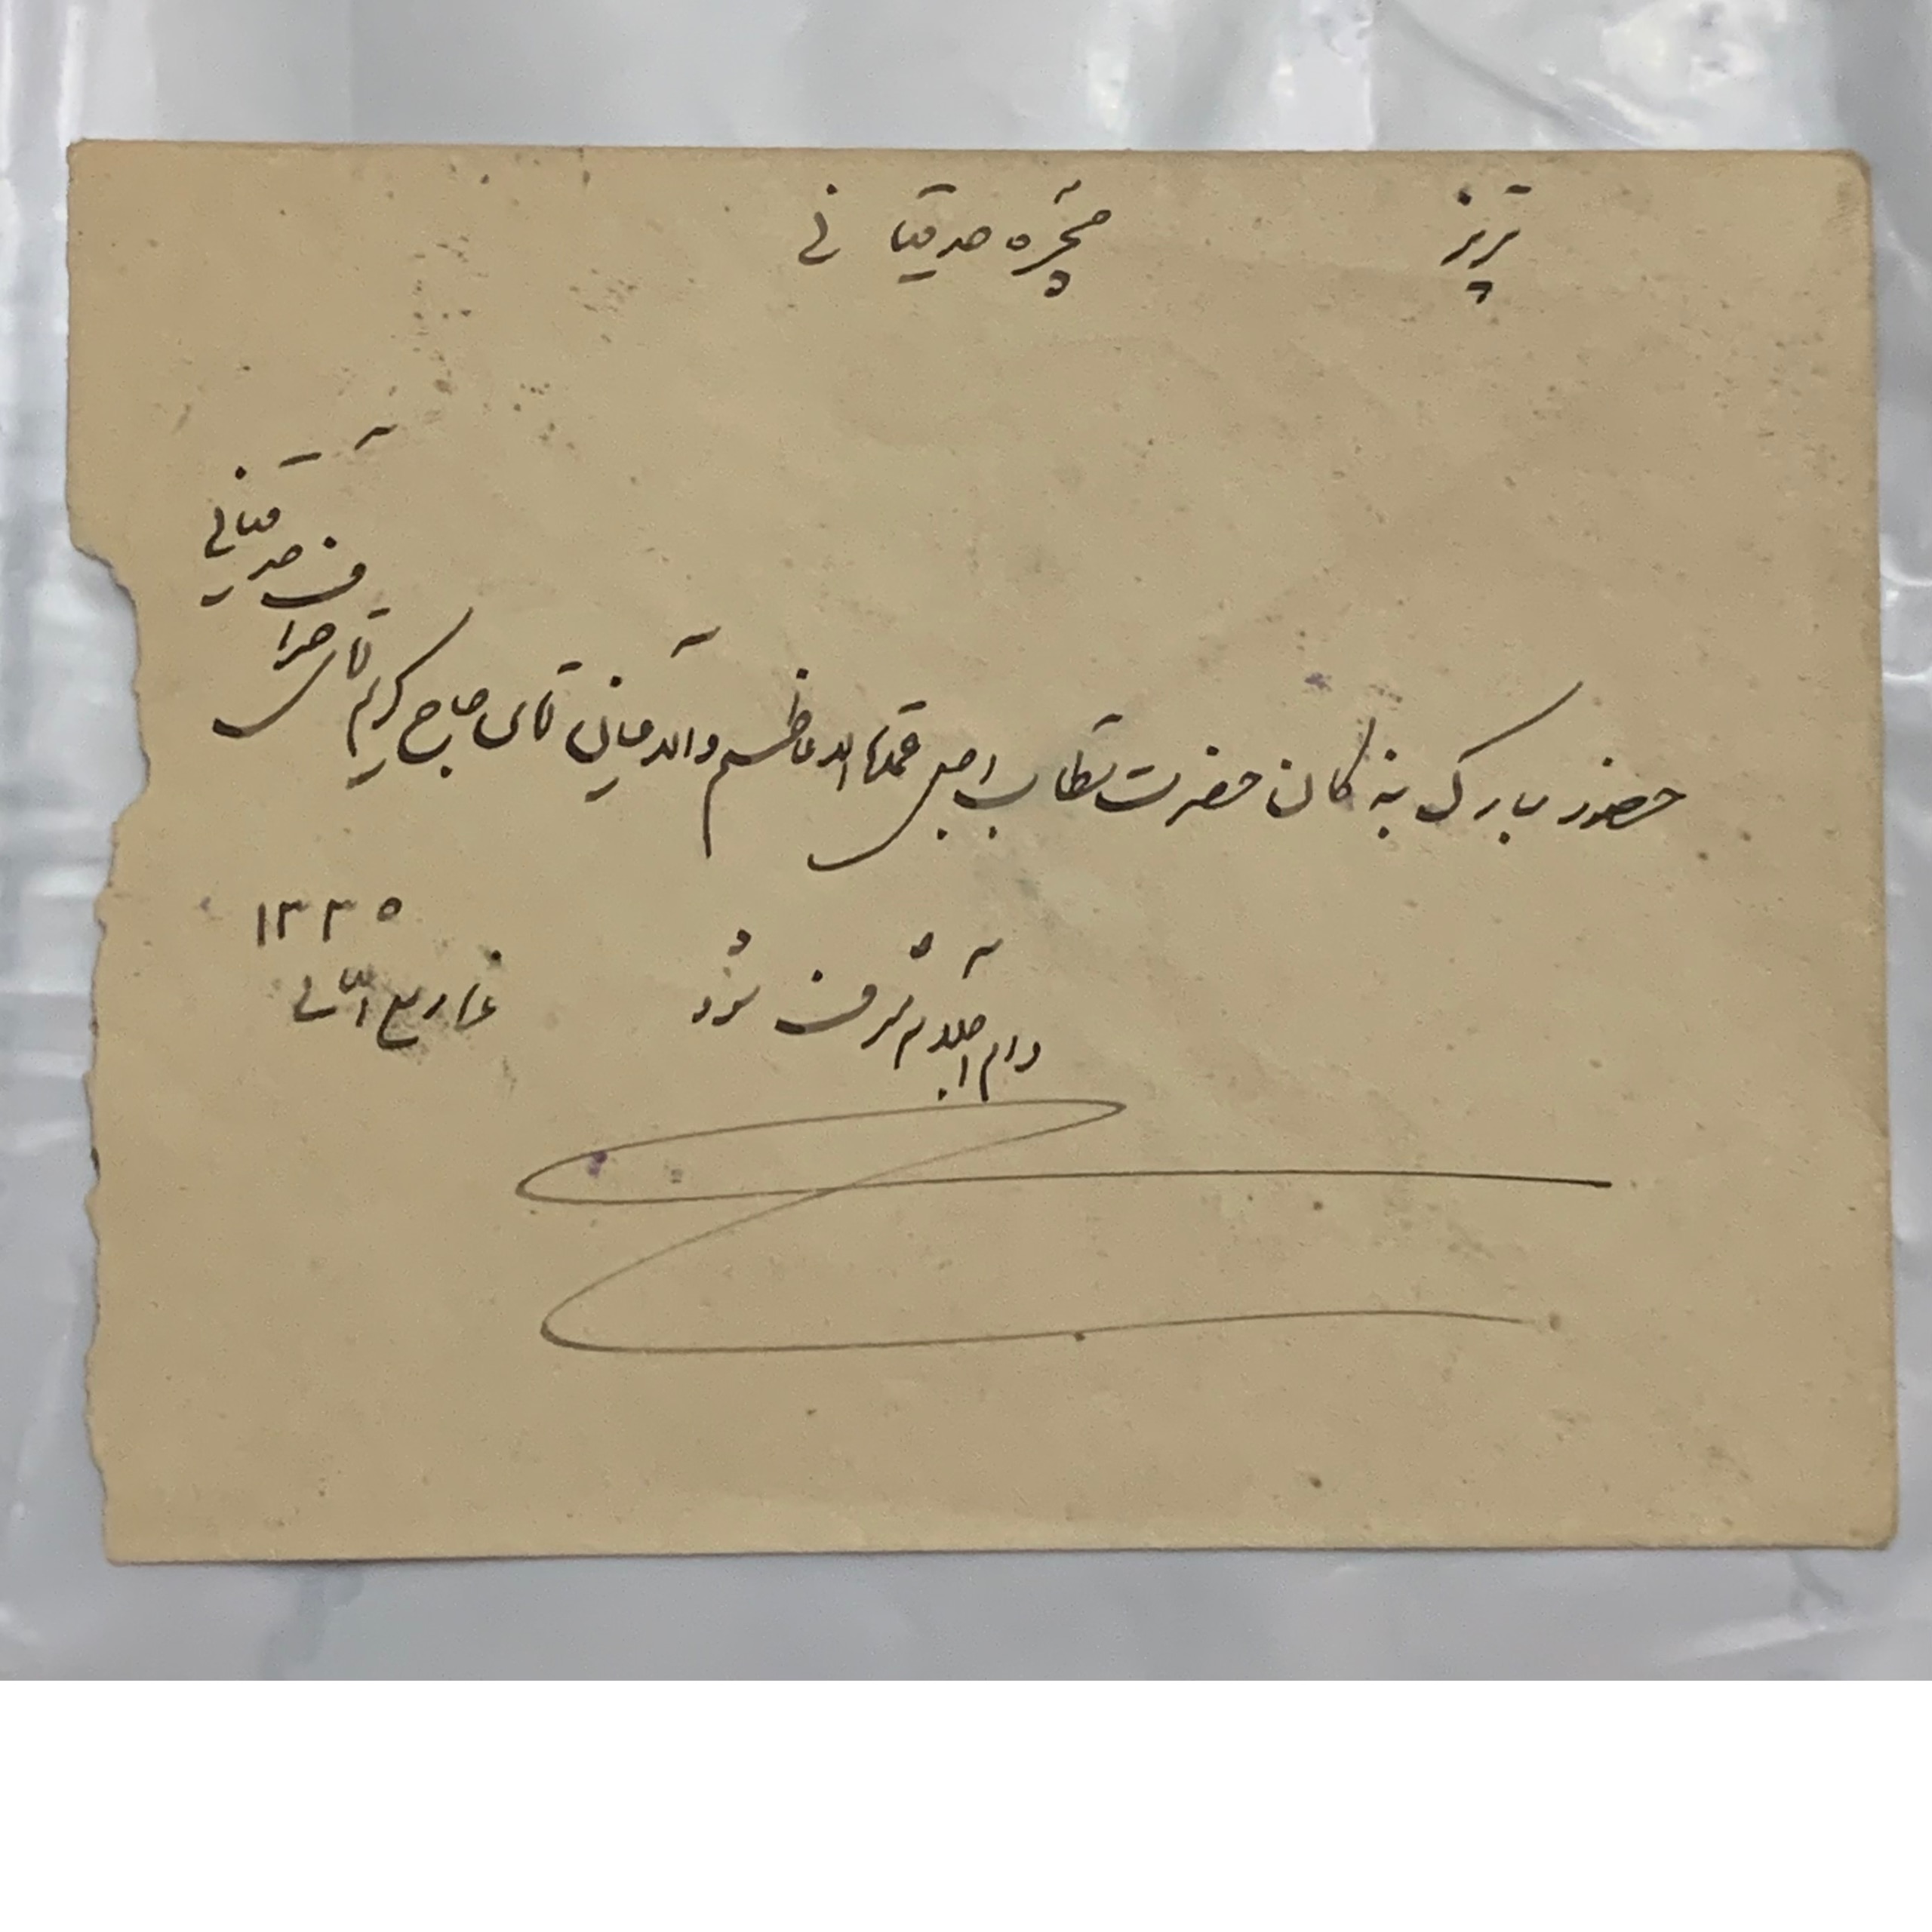 تبریز حجره صدقیانی
حضور مبارک بندگان حضرت مستطاب اجل عمدة الاعاظم والاعیان آقای حاج کریم آقای صراف صدقیانی
دام اجلاله مشرف شود
ربیع الثانی ۱۳۳۵